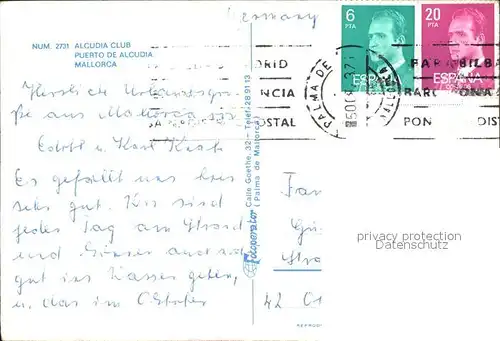 Germany
NUM. 2731 ALCUDIA CLUB
PUERTO DE ALCUDIA
MALLORCA
6
PTA
20
PTA
ESPAÑA
ESPAÑA
DRID
NCIA
OSTAL
PALMA DE
PARA BILBA
BARCELONA
PON DIS
Herzliche Urlaubsgrü-
ße aus Mallorca
u. Kurt
Es gefällt uns hier
sehr gut. Wir sind
jeden Tag am Strand
und können auch noch
gut ins Wasser gehen,
u. das im Oktober
Fotoperator
Calle Goethe, 32 - Telef. 28 91 13
(Palma de Mallorca)
Fam
Stra
42
REPROD
privacy protection
Datenschutz